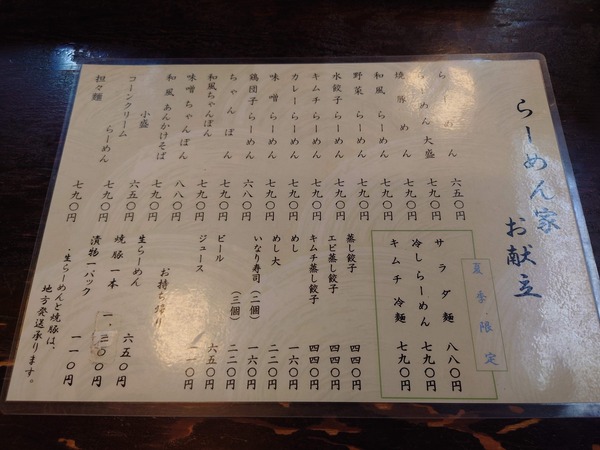 らーめん家 お献立
らーめん 六五〇円
らーめん大盛 七九〇円
焼豚めん 七九〇円
和風らーめん 七九〇円
野菜らーめん 七九〇円
水餃子らーめん 七九〇円
キムチらーめん 七九〇円
カレーらーめん 七九〇円
味噌らーめん 七九〇円
鶏団子らーめん 六八〇円
ちゃんぽん 七九〇円
和風ちゃんぽん 七九〇円
味噌ちゃんぽん 八八〇円
和風あんかけそば 七九〇円
小盛 六五〇円
コーンクリームらーめん 七九〇円
担々麺 七九〇円
夏季限定
サラダ麺 八八〇円
冷しらーめん 七九〇円
キムチ冷麺 七九〇円
蒸し餃子 四四〇円
エビ蒸し餃子 四四〇円
キムチ蒸し餃子 四四〇円
めし 一六〇円
めし大 二二〇円
いなり寿司(二個) 一六〇円
(三個) 二二〇円
ビール 六五〇円
ジュース 一一〇円
お持ち帰り
生らーめん 六五〇円
焼豚一本 一、三〇〇円
漬物一パック 一一〇円
・生らーめんと焼豚は、
地方発送承ります。